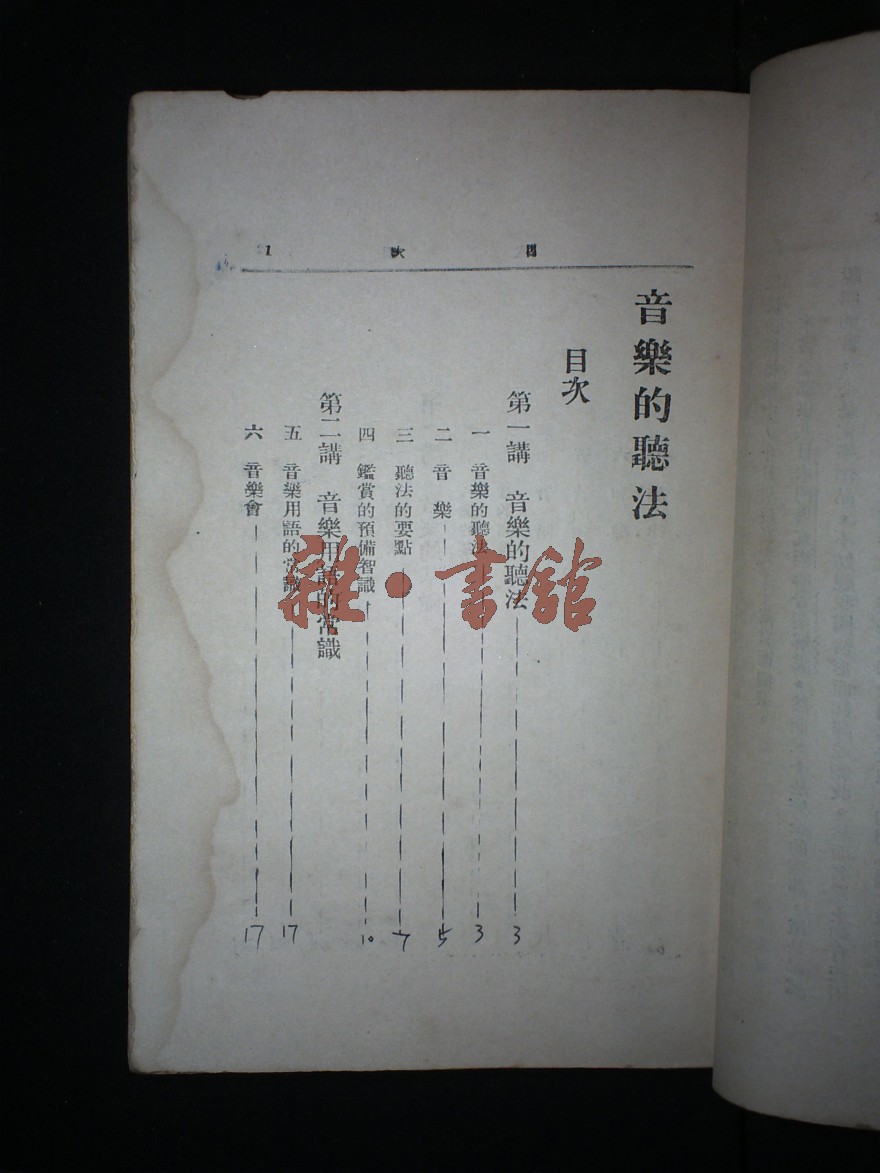 目次 1
音樂的聽法
目次
第一講 音樂的聽法 3
一 音樂的聽法 3
二 音樂 5
三 聽法的要點 7
四 鑑賞的預備智識 10
第二講 音樂用語的常識
五 音樂用語的常識 17
六 音樂會 17
雜·書館